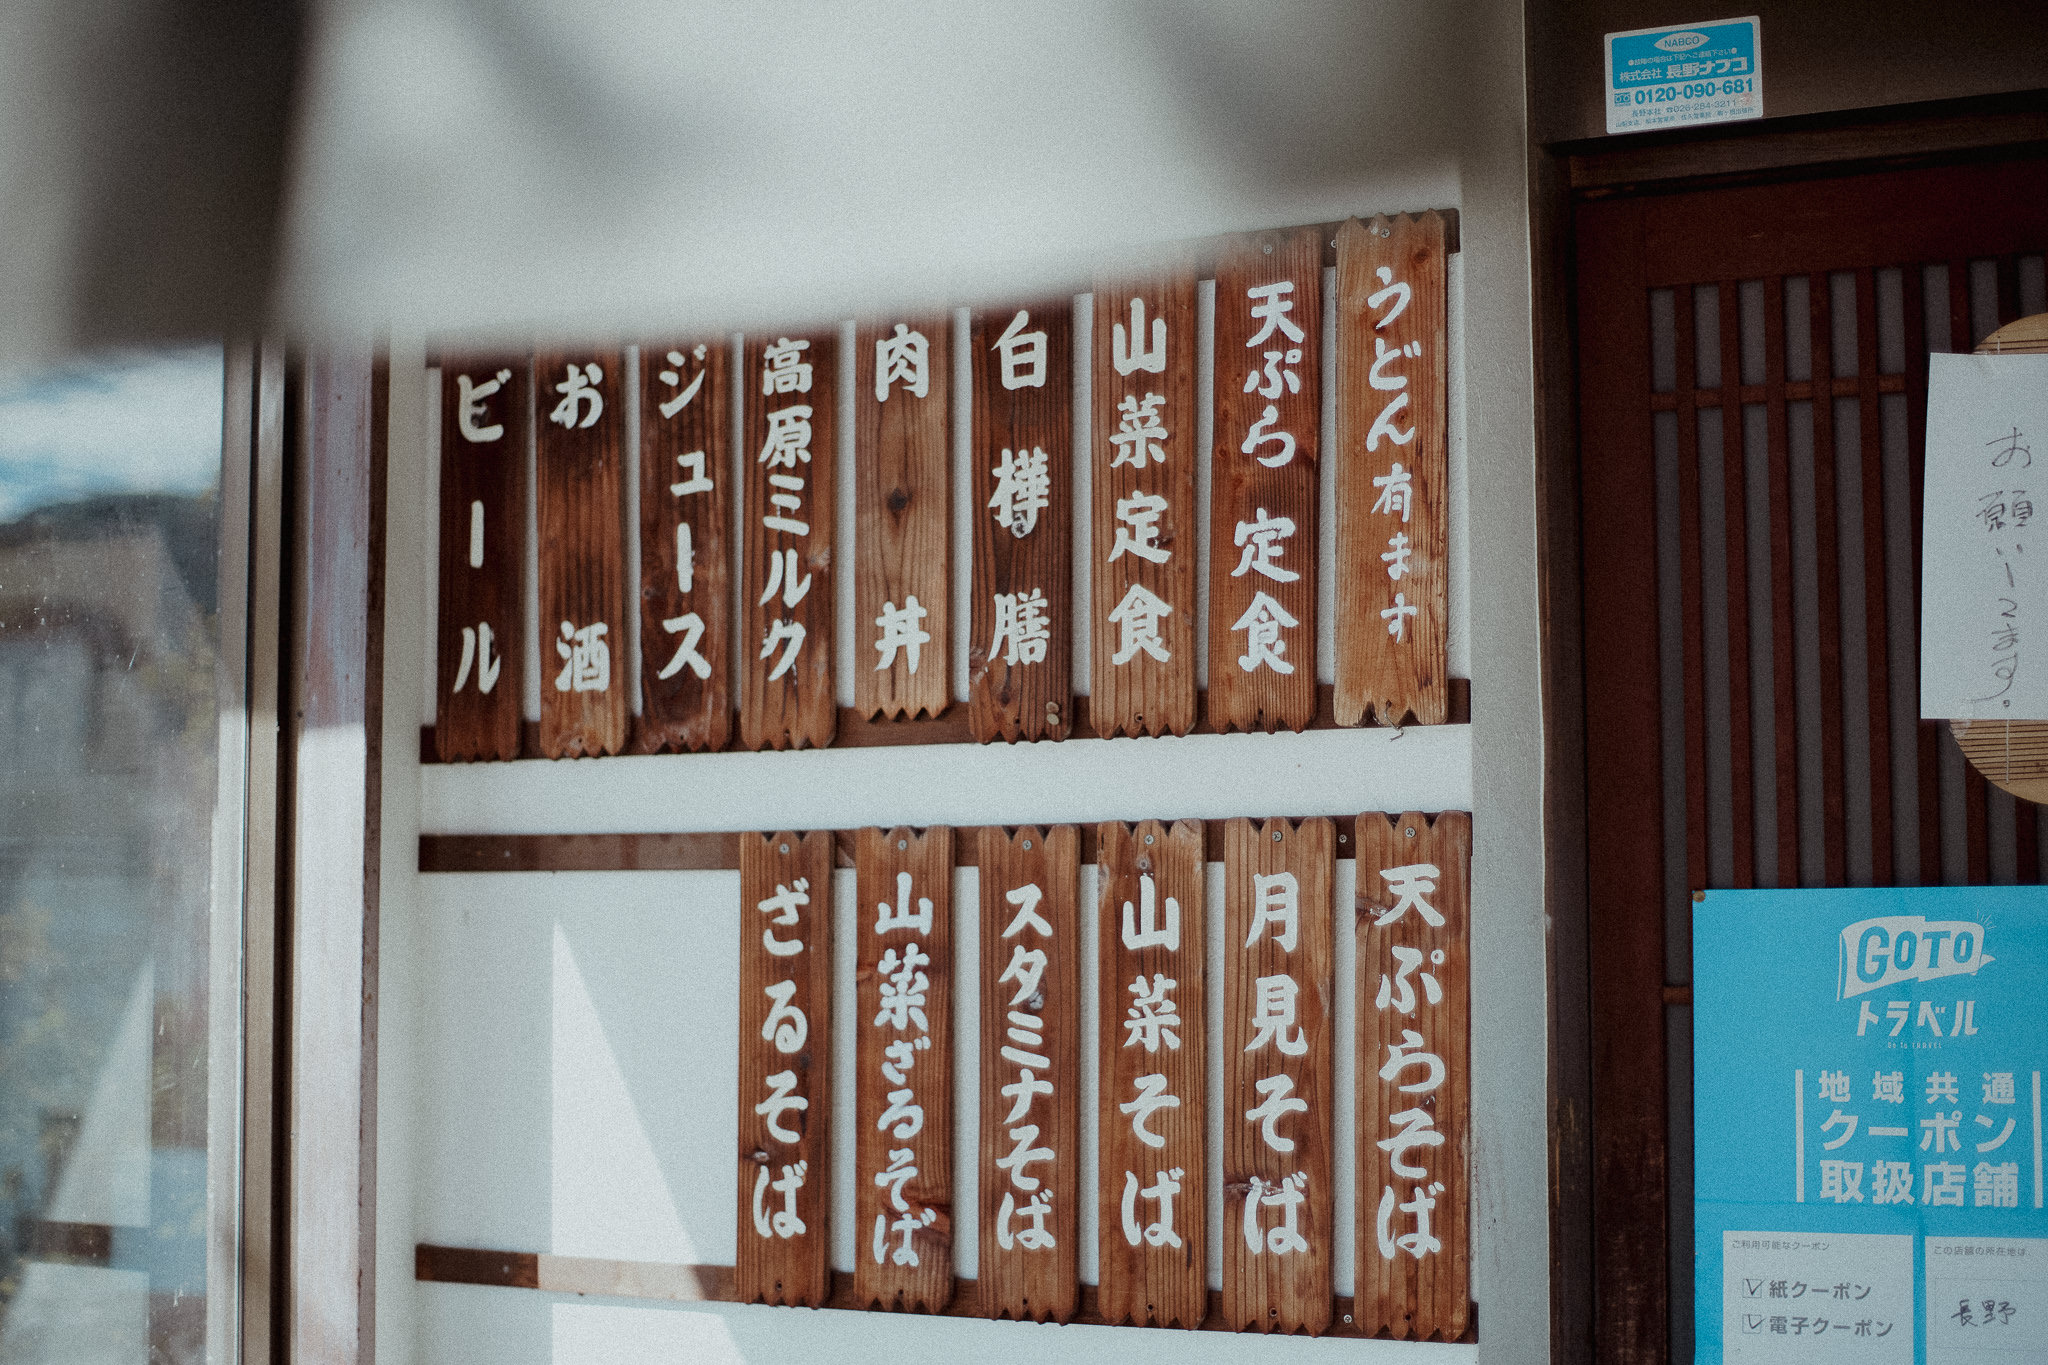 うどん有ます
天ぷら定食
山菜定食
白樺膳
肉丼
高原ミルク
ジュース
お酒
ビール
天ぷらそば
月見そば
山菜そば
スタミナそば
山菜ざるそば
ざるそば
NABCO
●故障の場合は下記へご連絡下さい●
株式会社 長野ナブコ
0120-090-681
長野本社 ☎026-284-3211
お願いします。
GOTO
トラベル
Go To TRAVEL
地域共通
クーポン
取扱店舗
ご利用可能なクーポン
紙クーポン
電子クーポン
この店舗の所在地は
長野